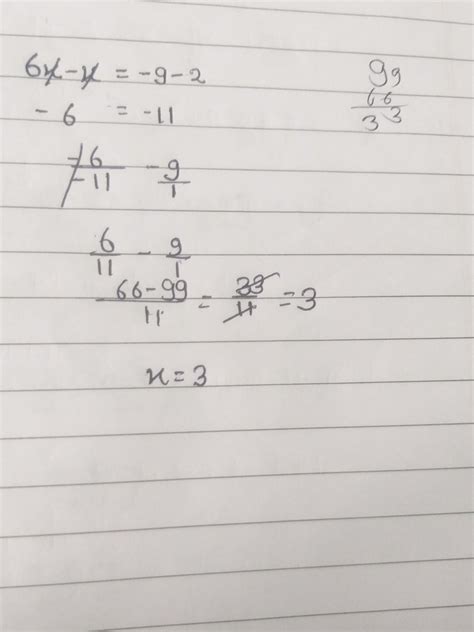 6x-x = -9-2
-6 = -11
-6/-11 - 9/1
6/11 - 9/1
66-99/11 = 33/11 = 3
x = 3
99
66
33